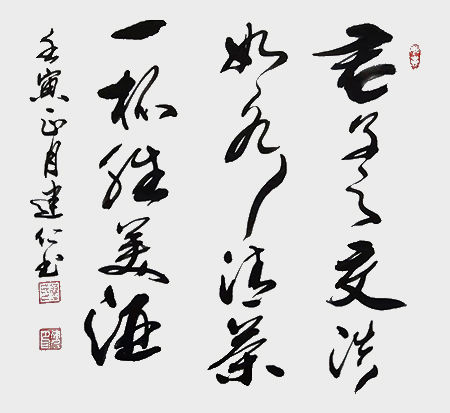 君子之交淡
如水清茶
一杯胜美酒
壬寅正月建仁书